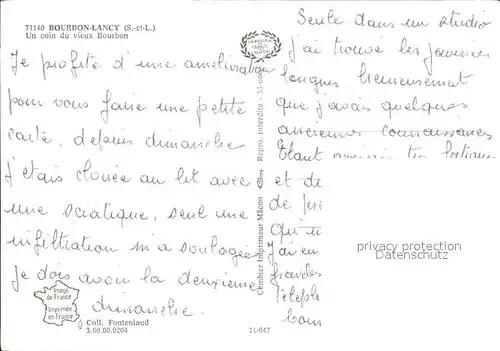 71140 BOURBON-LANCY (S.-et-L.)
Un coin du vieux Bourbon
Je profite d'une amélioration
pour vous faire une petite
carte, depuis dimanche
j'étais clouée au lit avec
une sciatique, seul une
infiltration m'a soulagée
je dois avoir la deuxième
dimanche.
Image
de France
Imprimée
en France
Coll. Fontenlaud
3.00.00.0204
Combier Imprimeur Mâcon
Repro. interdite
71-047
Seule dans un studio
j'ai trouvé les journées
longues heureusement
que j'avais quelques
anciennes connaissances
Étant
et de
de
qui
J'ai en
grandes
téléph
bons
privacy protection
Datenschutz